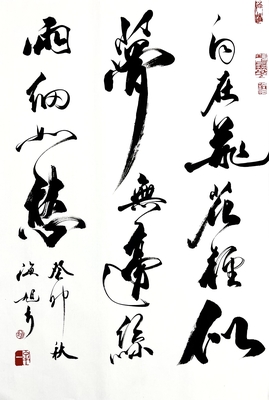 自在飛花輕似
夢無邊絲
雨細如愁
癸卯秋